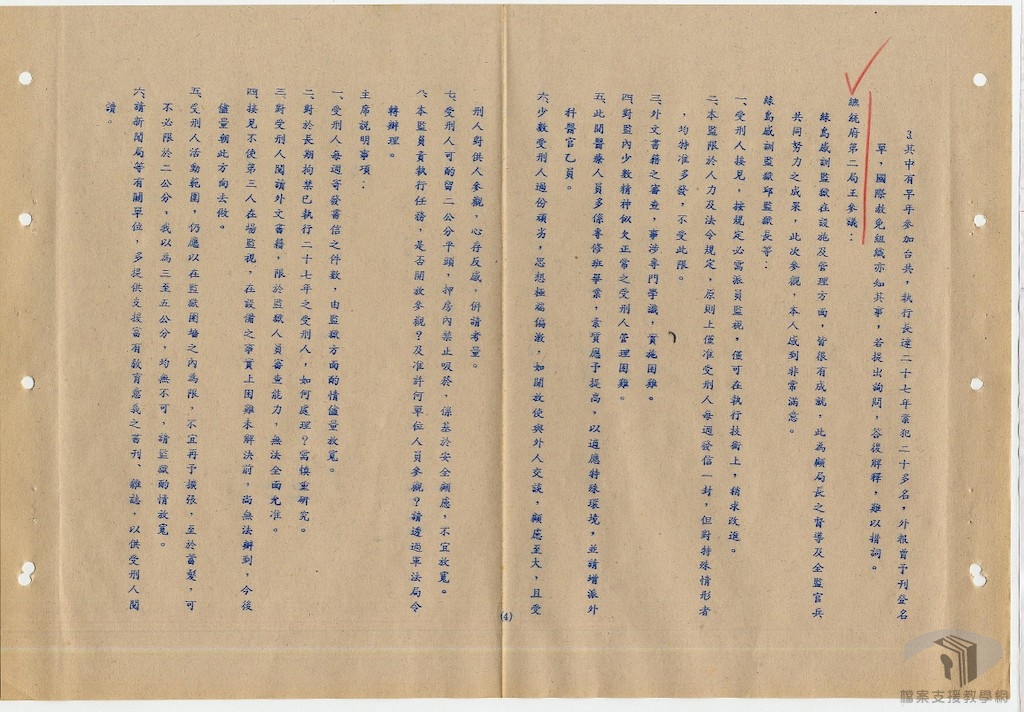 3.其中有早年參加台共，執行長達二十七年案犯二十多名，外報曾予刊登名
單，國際赦免組織亦知其事，若提出詢問，答復解釋，難以措詞。
總統府第二局王參議：
綠島感訓監獄在設施及管理方面，皆很有成就，此為顧局長之督導及全監官兵
共同努力之成果，此次參觀，本人感到非常滿意。
綠島感訓監獄邱監獄長等：
一、受刑人接見，按規定必需派員監視，僅可在執行技術上，稍求改進。
二、本監限於人力及法令規定，原則上僅准受刑人每週發信一封，但對特殊情形者
，均特准多發，不受此限。
三、外文書籍之審查，事涉專門學識，實施困難。
四、對監內少數精神似欠正常之受刑人管理困難。
五、此間醫療人員多係專修班畢業，素質應予提高，以適應特殊環境，並請增派外
科醫官乙員。
六、少數受刑人過份頑劣，思想極端偏激，如開放使與外人交談，顧慮至大，且受
(4)
刑人對供人參觀，心存反感，併請考量。
七、受刑人可酌留二公分平頭，押房內禁止吸菸，係基於安全顧慮，不宜放寬。
八、本監員責執行任務，是否開放參觀？及准許何單位人員參觀？請透過軍法局令
轉辦理。
主席說明事項：
一、受刑人每週寄發書信之件數，由監獄方面酌情儘量放寬。
二、對於長期拘禁已執行二十七年之受刑人，如何處理？需慎重研究。
三、對受刑人閱讀外文書籍，限於監獄人員審查能力，無法全面允准。
四、接見不使第三人在場監視，在設備之事實上困難未解決前，尚無法辦到，今後
儘量朝此方向去做。
五、受刑人活動範圍，仍應以在監獄圍墻之內為限，不宜再予擴張，至於蓄髮，可
不必限於二公分，我以為三至五公分，均無不可，請監獄酌情放寬。
六、請新聞局等有關單位，多提供支援富有教育意義之書刊、雜誌，以供受刑人閱
讀。
檔案支援教學網